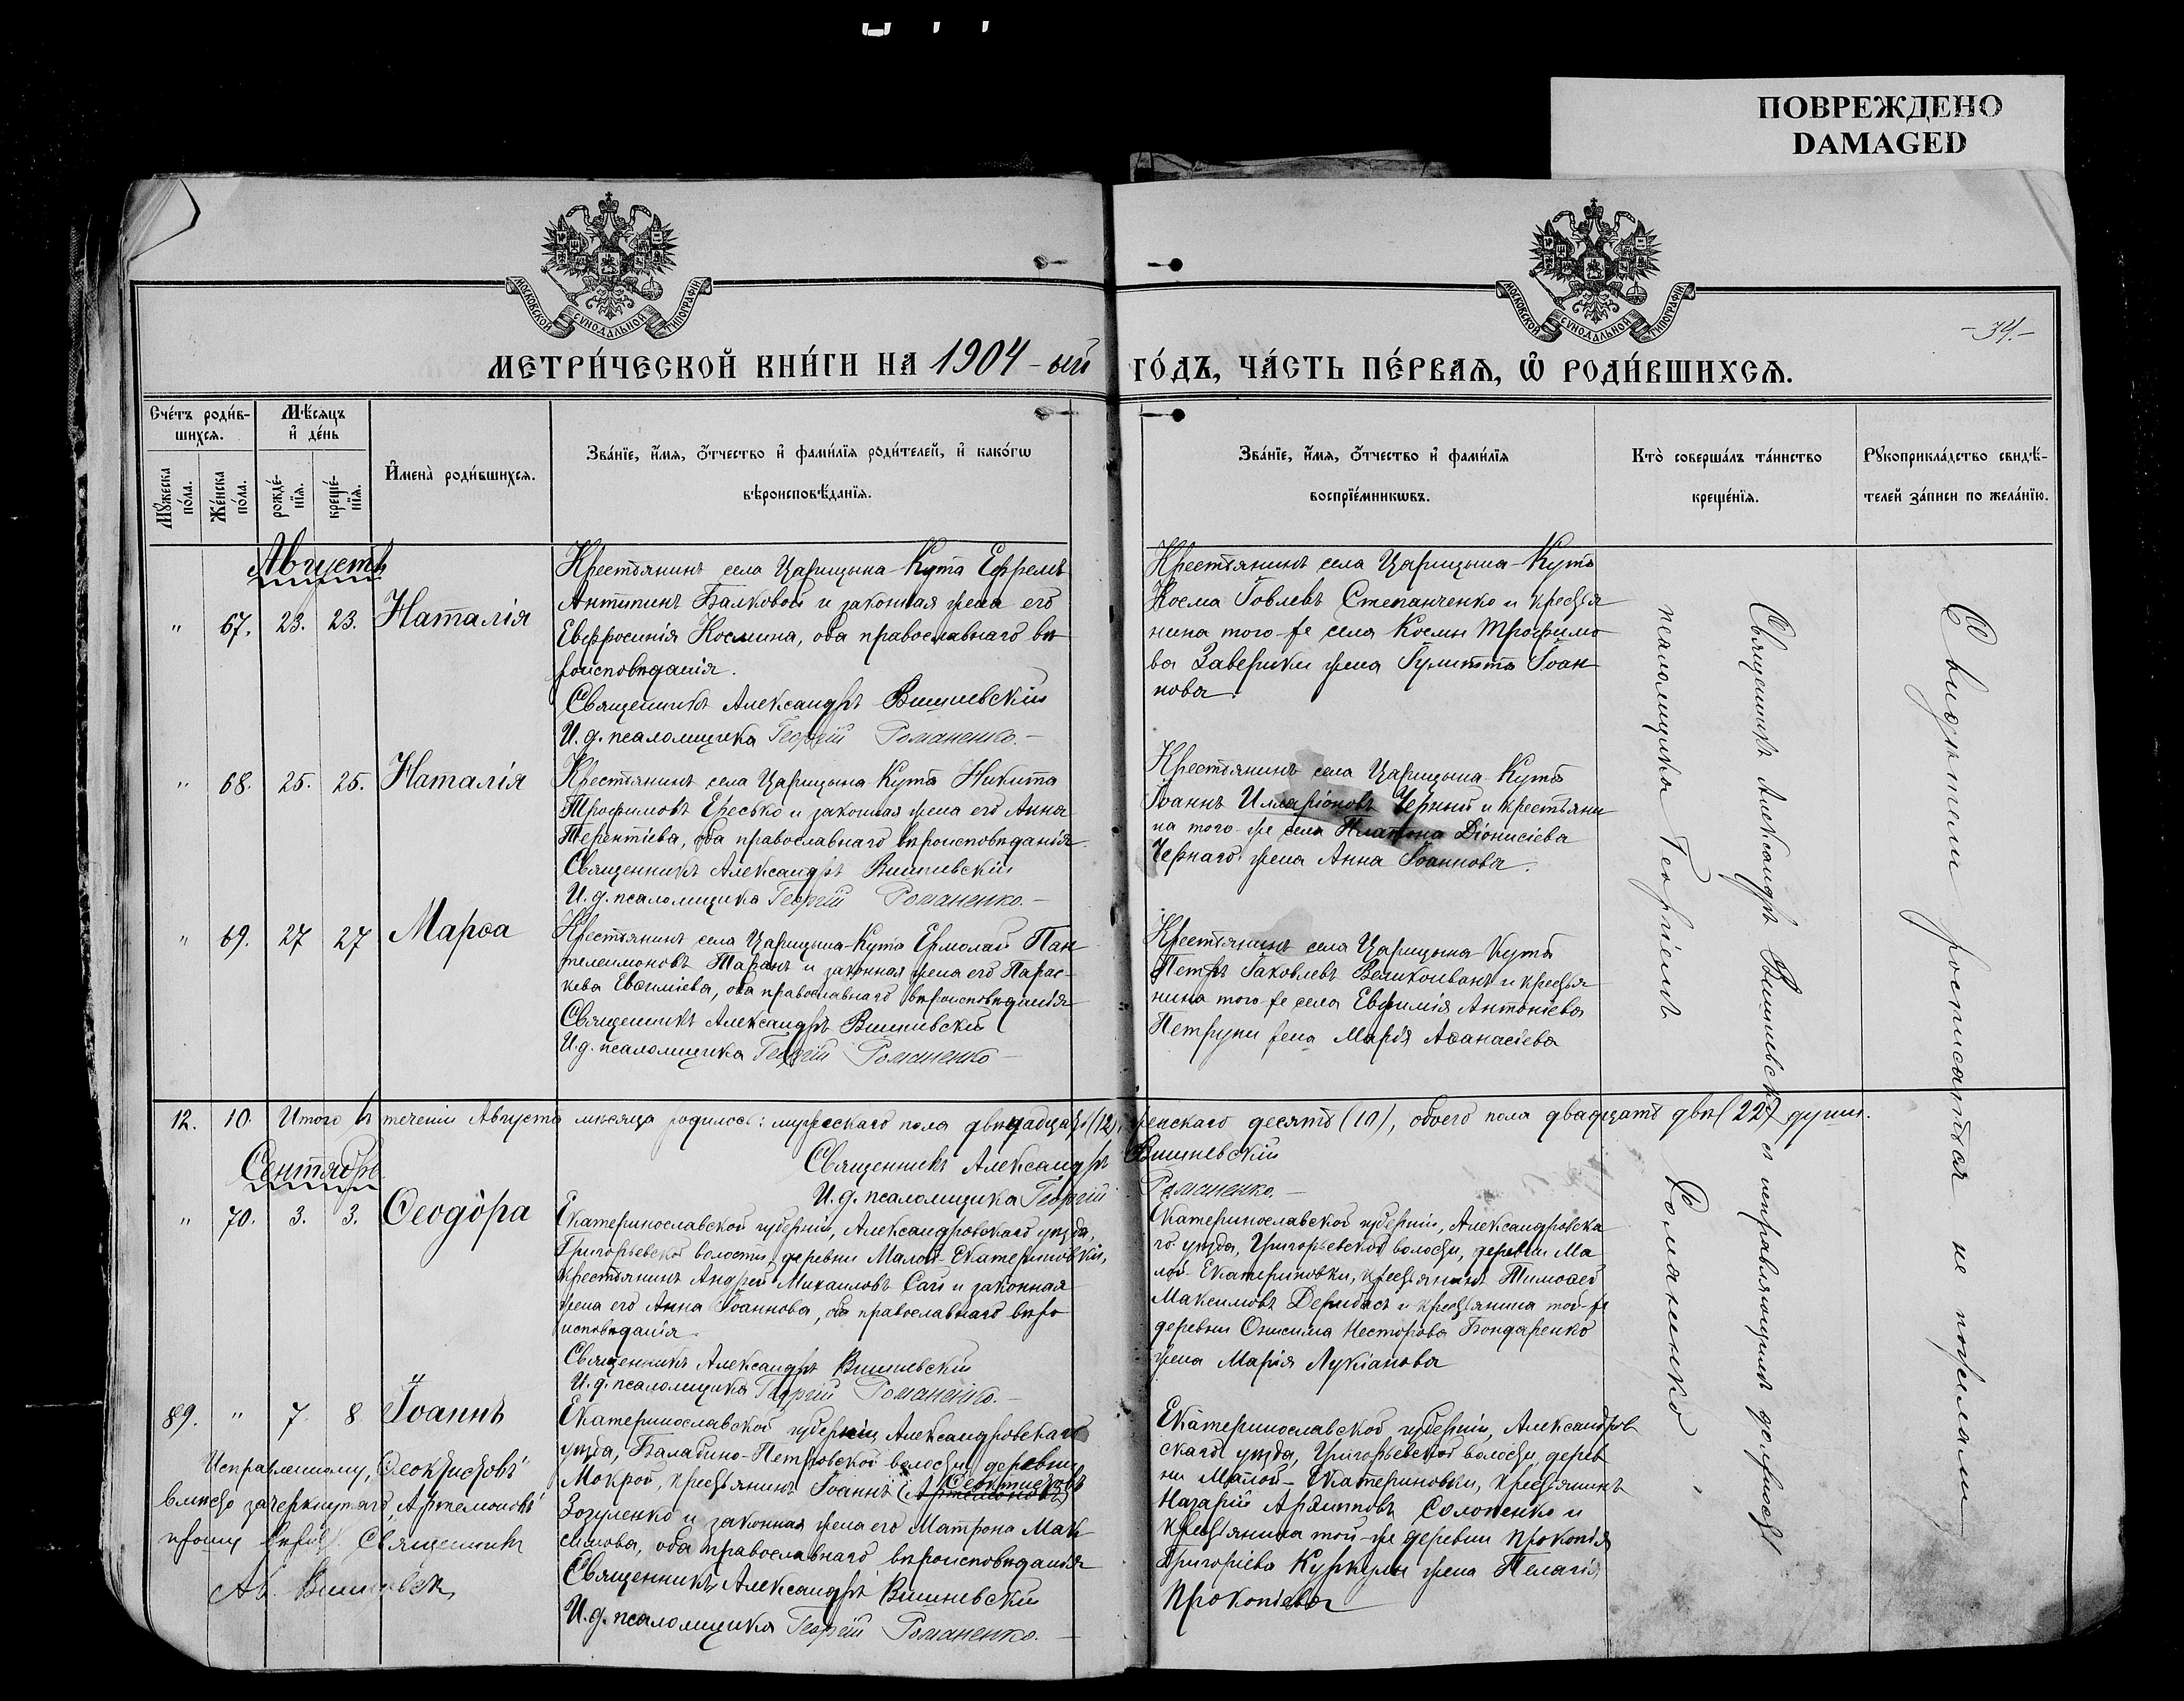 ПОВРЕЖДЕНО
DAMAGED
МОСКОВСКОЙ СѴНОДАЛЬНОЙ ТИПОГРАФІИ
МОСКОВСКОЙ СѴНОДАЛЬНОЙ ТИПОГРАФІИ
-34.-
МЕТРИ́ЧЕСКОЙ КНИ́ГИ НА 1904-ый ГО́ДЪ, ЧА́СТЬ ПЕ́РВАѦ, Ѡ҆ РОДИ́ВШИХСѦ.
Сче́тъ роди́в-
шихсѧ.
Мꙋ́жеска по́ла.
Же́нска по́ла.
Мѣ́сѧцъ
и҆ де́нь
рожде́-
нїѧ.
креще́-
нїѧ.
И҆мена̀ роди́вшихсѧ.
Зва́нїе, и҆́мѧ, ѻ҆́тчество и҆ фами́лїѧ роди́телей, и҆ како́гѡ
вѣроисповѣ́данїѧ.
Зва́нїе, и҆́мѧ, ѻ҆́тчество и҆ фами́лїѧ
воспрїе́мникѡвъ.
Кто̀ соверша́лъ та́инство
креще́нїѧ.
Рꙋкоприкла́дство свидѣ́-
телей за́писи по жела́нїю.
Августъ
" 67. 23. 23. Наталія
Крестьянинъ села Царицына-Кута Ефремъ
Антипинъ Балковой и законная жена его
Евфросинія Космина, оба православнаго вѣ
роисповѣданія.
Священникъ Александръ Вишневскій
И. д. псаломщика Георгій Романенко.-
Крестьянинъ села Царицына-Кута
Косма Іовлевъ Степанченко и крестья
нина того-же села Космы Трофимо
ва Заверики жена Іулитта Іоан
нова.
" 68. 25. 25. Наталія
Крестьянинъ села Царицына-Кута Никита
Трофимовъ Ересько и законная жена его Анна
Терентіева, оба православнаго вѣроисповѣданія
Священникъ Александръ Вишневскій
И. д. псаломщика Георгій Романенко.-
Крестьянинъ села Царицына-Кута
Іоаннъ Илларіоновъ Черный и крестьяни
на того-же села Платона Діонисіева
Чернаго жена Анна Іоаннова.
" 69. 27 27 Марѳа
Крестьянинъ села Царицына-Кута Ермолай Пан
телеимоновъ Таранъ и законная жена его Парас-
кева Евѳиміева, оба православнаго вѣроисповѣданія
Священникъ Александръ Вишневскій
И. д. псаломщика Георгій Романенко-
Крестьянинъ села Царицына-Кута
Петръ Іаковлевъ Великоиванъ и крестья
нина того-же села Евфимія Антоніева
Петруни жена Марія Аѳанасіева
12. 10. Итого въ теченіи Августа мѣсяца родилось: мужескаго пола двѣнадцать (12), женскаго десять (10), обоего пола двадцать двѣ (22) души.
Священникъ Александръ Вишневскій
И. д. псаломщика Георгій Романенко.-
Сентябрь
" 70. 3. 3. Ѳеодора
Екатеринославской губерніи, Александровскаго уѣзда,
Григорьевской волости, деревни Малой-Екатериновки,
крестьянинъ Андрей Михаиловъ Сай и законная
жена его Анна Іоаннова, оба православнаго вѣро
исповѣданія
Священникъ Александръ Вишневскій
И. д. псаломщика Георгій Романенко.-
Екатеринославской губерніи, Александровска
го уѣзда, Григорьевской волости, деревни Ма
лой-Екатериновки, крестьянинъ Тимоѳей
Максимовъ Дерибасъ и крестьянина той-же
деревни Онисима Несторова Бондаренко
жена Марія Лукіанова
89. " 7 8 Іоаннъ
Екатеринославской губерніи, Александровскаго
уѣзда, Балабино-Петровской волости, деревни
Мокрой, крестьянинъ Іоаннъ (Артемоновъ) Ѳеоктистовъ
Зозуленко и законная жена его Матрона Мак
симова, оба православнаго вѣроисповѣданія
Священникъ Александръ Вишневскій
И. д. псаломщика Георгій Романенко.-
Исправленному, Ѳеоктистовъ
вмѣсто зачеркнутаго, Артемоновъ
прошу вѣрить. Священникъ
Ал. Вишневскій
Екатеринославской губерніи, Александров
скаго уѣзда, Григорьевской волости, дерев
ни Малой-Екатериновки, крестьянинъ
Назарій Архиповъ Солопенко и
крестьянина той-же деревни Прокопія
Григоріева Куркулы жена Пелагія
Прокопіева
Священникъ Александръ Вишневскій и исправляющій должность
псаломщика Георгіемъ Романенко.
Свидѣтели росписаться не пожелали